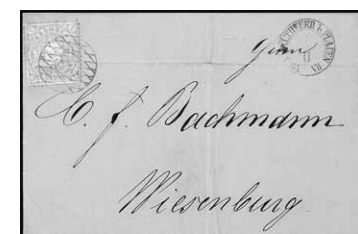 Herrn
C. F. Bachmann
Wiesenburg.